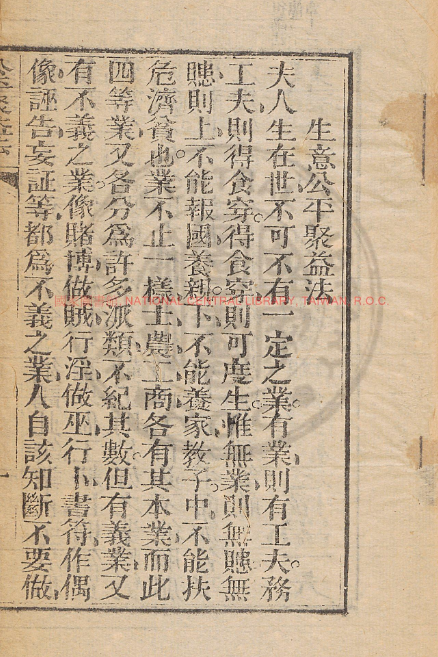 生意公平聚益法
夫人生在世不可不有一定之業有業則有工夫務
工夫則得食穿得食穿則可度生惟無業則無賬無
賬則上不能報國養親下不能養家教子中不能扶
危濟貧也業不止一樣士農工商各有其本業而此
四等業又各分爲許多派類不紀其數但有義業又
有不義之業像賭博做賊行淫做巫行卜書符作偶
像誣告妄証等都爲不義之業人自該知斷不要做
NATIONAL CENTRAL LIBRARY, TAIWAN, R.O.C.